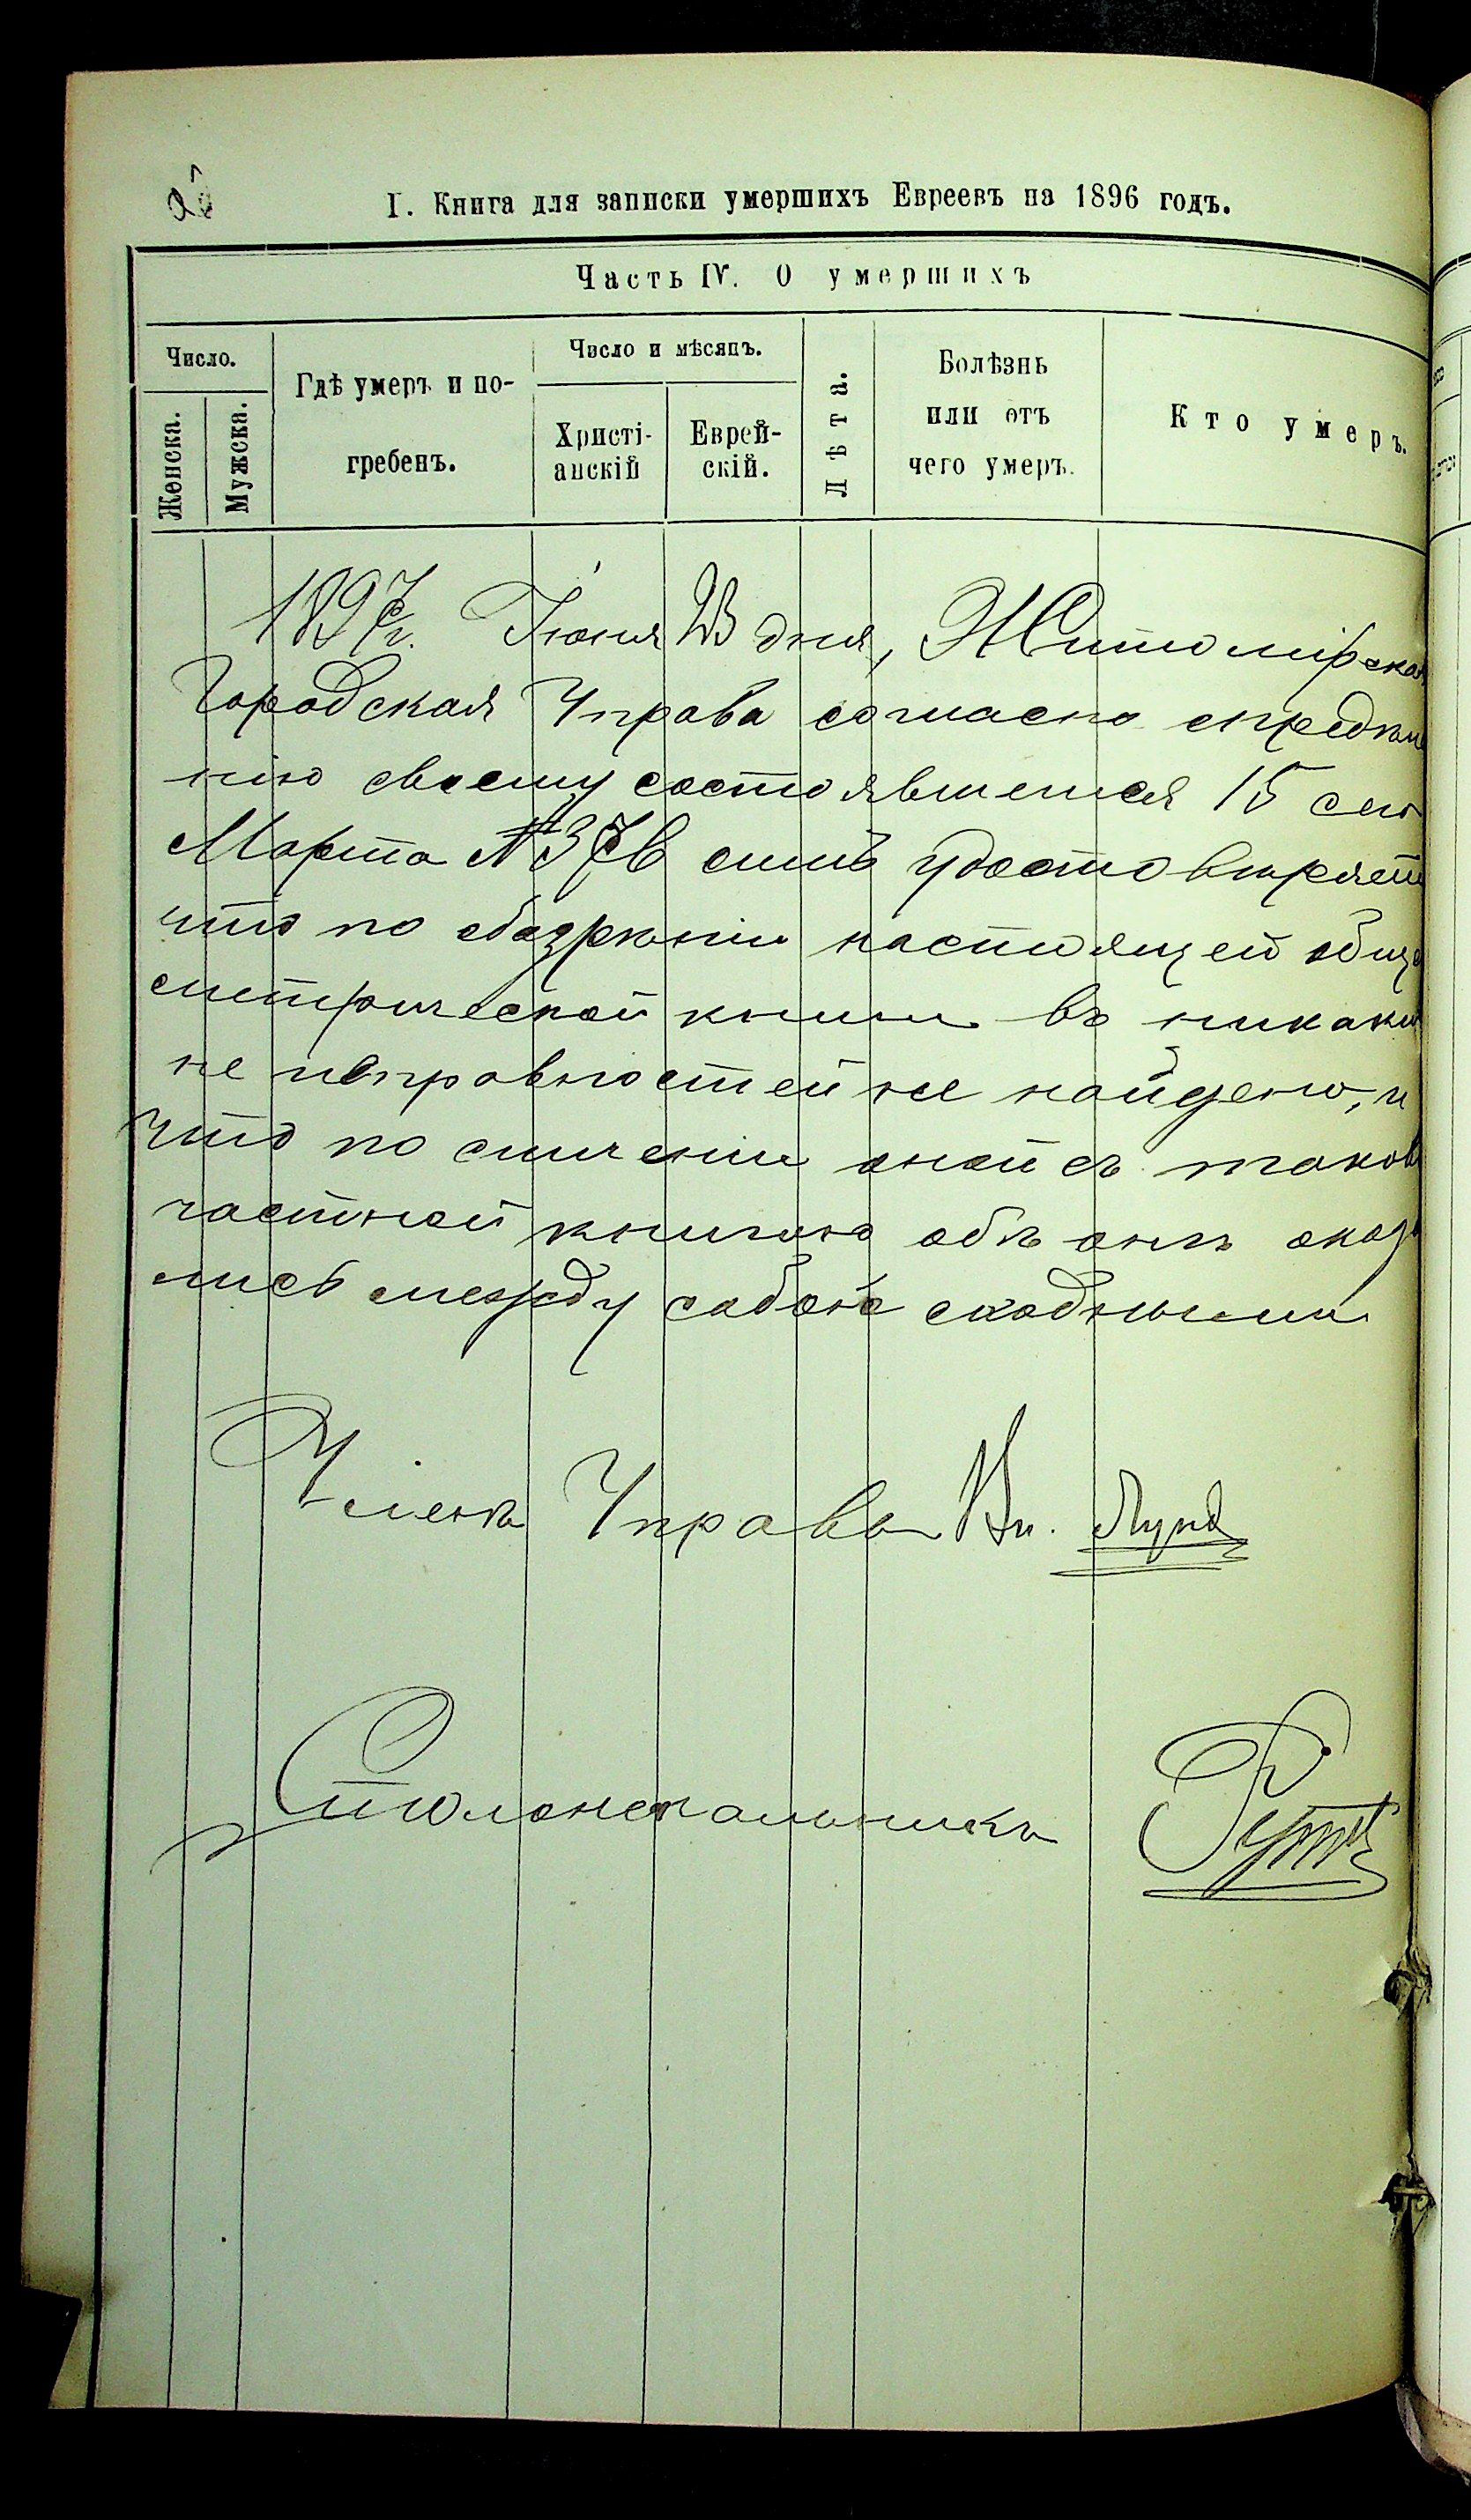 I. Книга для записки умершихъ Евреевъ на 1896 годъ.
Часть IV. О умершихъ
Число.
Женска.
Мужска.
Гдѣ умеръ и по-
гребенъ.
Число и мѣсяцъ.
Христі-
анскій
Еврей-
скій.
Лѣта.
Болѣзнь
или отъ
чего умеръ.
Кто умеръ.
1897 г. Іюня 23 дня, Житомірская
Городская Управа согласно опредѣле
нію своему состоявшемуся 15 сего
Марта № 376 симъ удостовѣряетъ
что по обозрѣнію настоящей
метрической книги въ никаки
не исправностей не найдено, и
что по сличеніи оной съ таков
частной книгою обѣ онѣ оказа
лись между собою сходными
Членъ Управы Вл.
Столоначальникъ